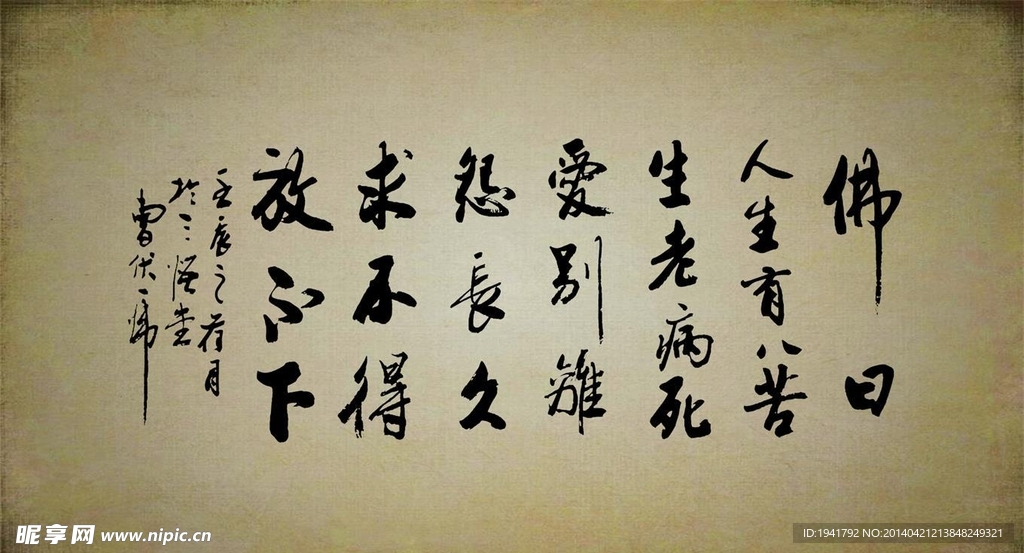 佛曰
人生有八苦
生老病死
愛别離
怨長久
求不得
放不下
壬辰之荷月
於三悟堂
曹伏
昵享网 www.nipic.cn
ID:1941792 NO:20140421213848249321